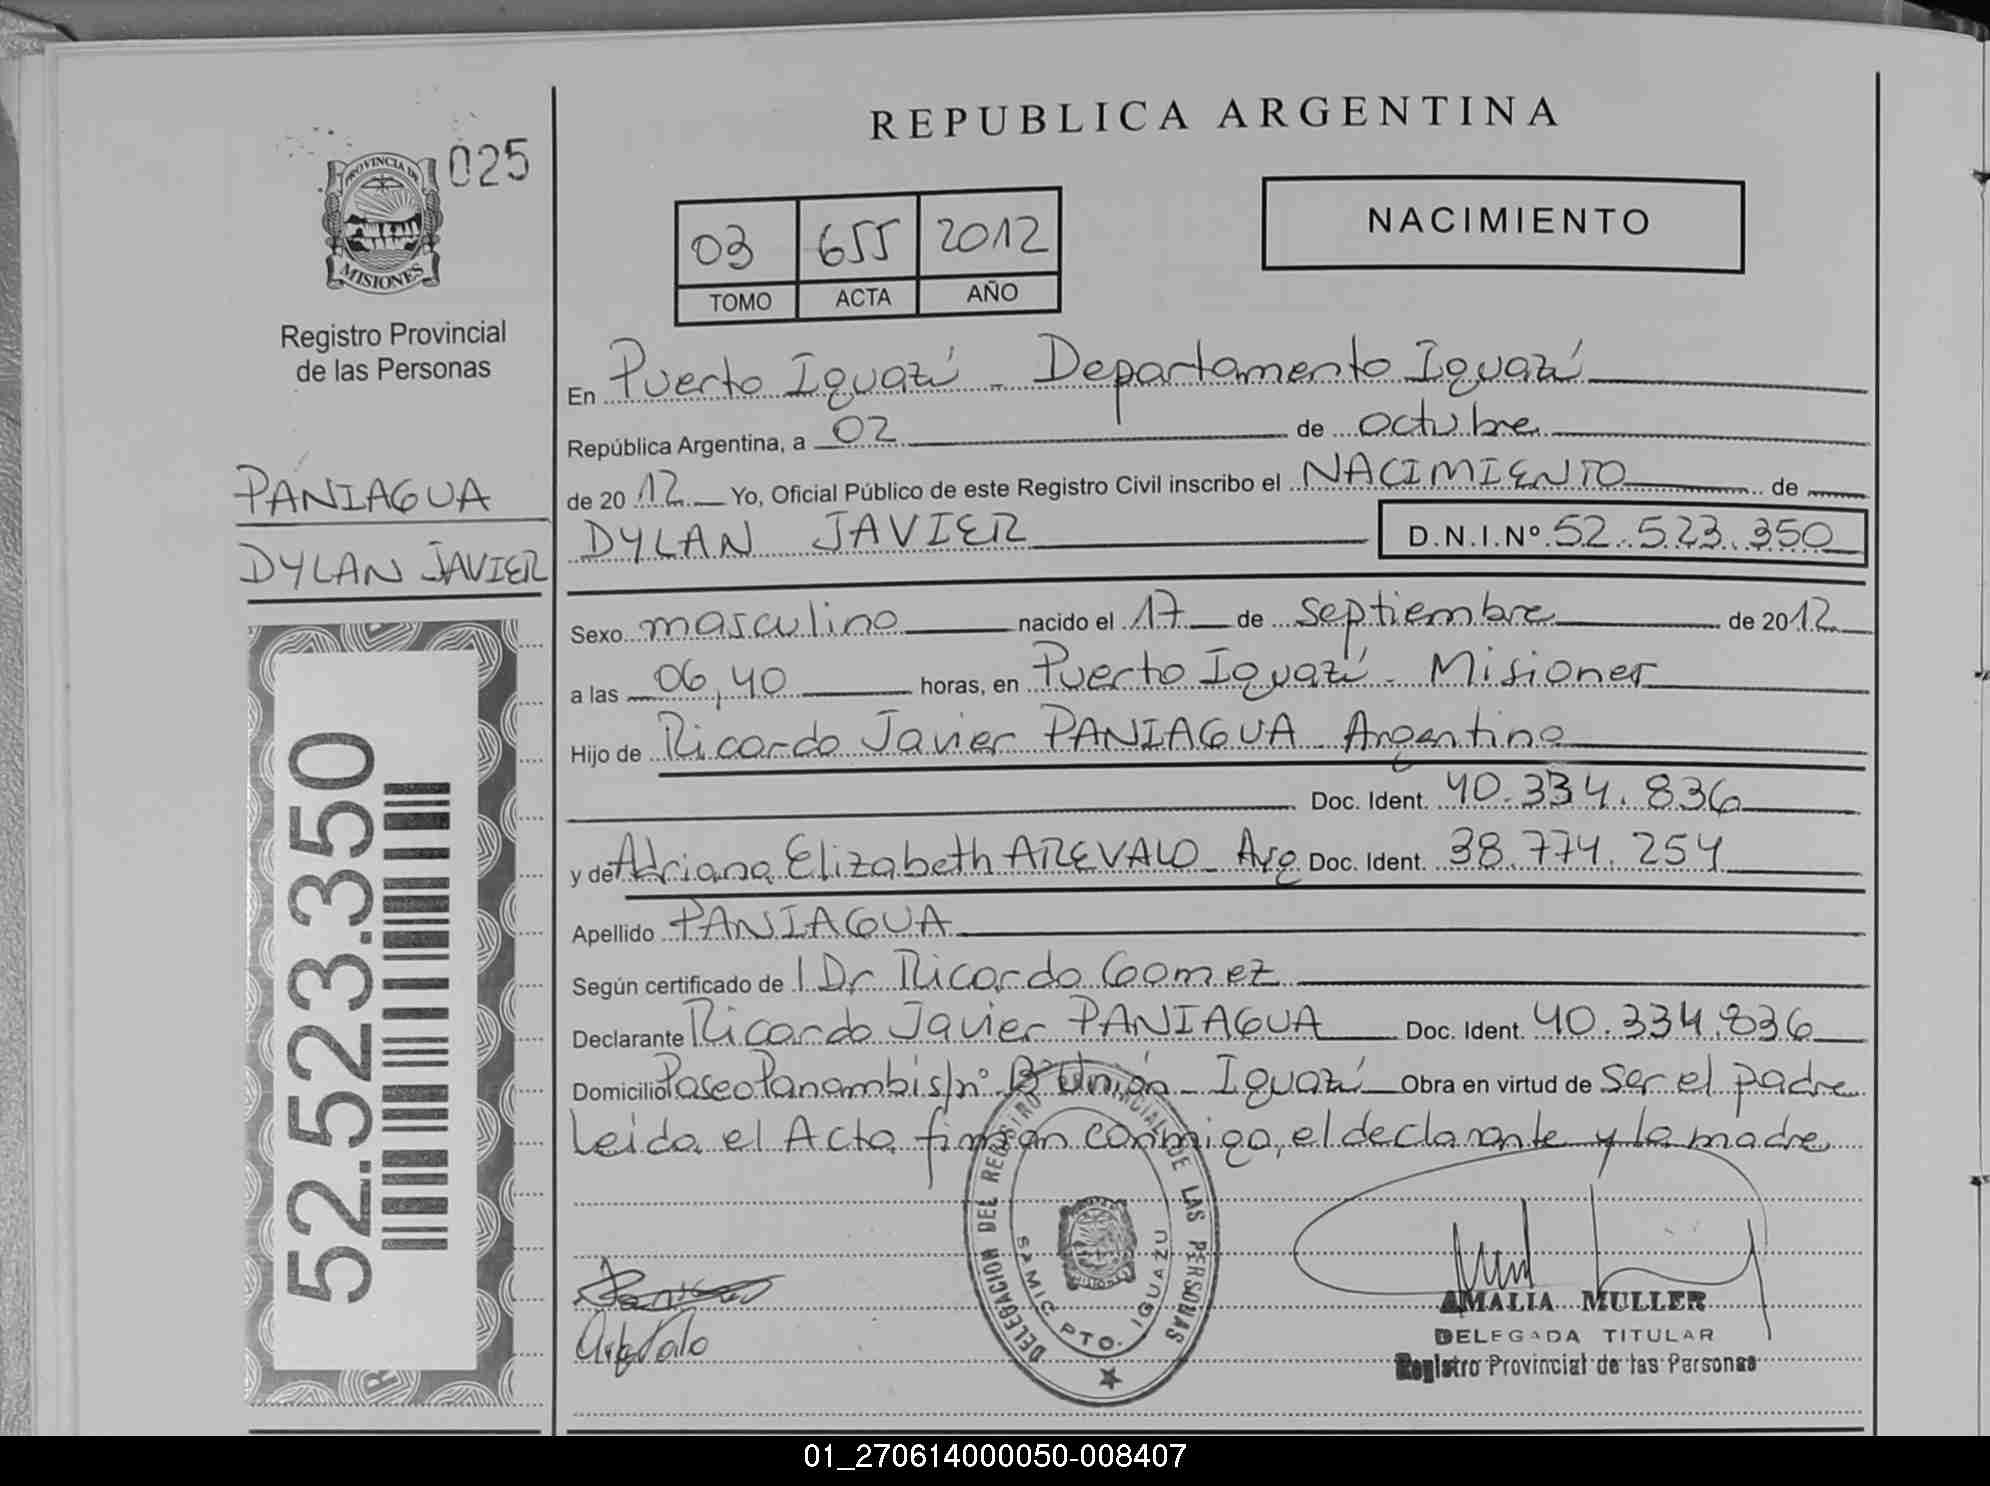 REPUBLICA ARGENTINA
025
PROVINCIA DE
MISIONES
Registro Provincial
de las Personas
NACIMIENTO
03 655 2012
TOMO ACTA AÑO
PANIAGUA
DYLAN JAVIER
52.523.350
En Puerto Iguazú - Departamento Iguazú
República Argentina, a 02 de octubre
de 2012 Yo, Oficial Público de este Registro Civil inscribo el NACIMIENTO de
DYLAN JAVIER D.N.I.Nº 52.523.350
Sexo masculino nacido el 17 de septiembre de 2012
a las 06,40 horas, en Puerto Iguazú - Misiones
Hijo de Ricardo Javier PANIAGUA Argentino
Doc. Ident. 40.334.836
y de Adriana Elizabeth AREVALO - Arg Doc. Ident. 38.774.254
Apellido PANIAGUA
Según certificado de Dr Ricardo Gomez
Declarante Ricardo Javier PANIAGUA Doc. Ident. 40.334.836
Domicilio Paseo Panambi s/nº Bº Unión - Iguazú Obra en virtud de ser el padre
Leída el Acta firman conmigo, el declarante y la madre
DELEGACION DEL REGISTRO PROVINCIAL DE LAS PERSONAS
SAMIC PTO. IGUAZU
MISIONES
Arevalo
AMALIA MULLER
DELEGADA TITULAR
Registro Provincial de las Personas
01_270614000050-008407